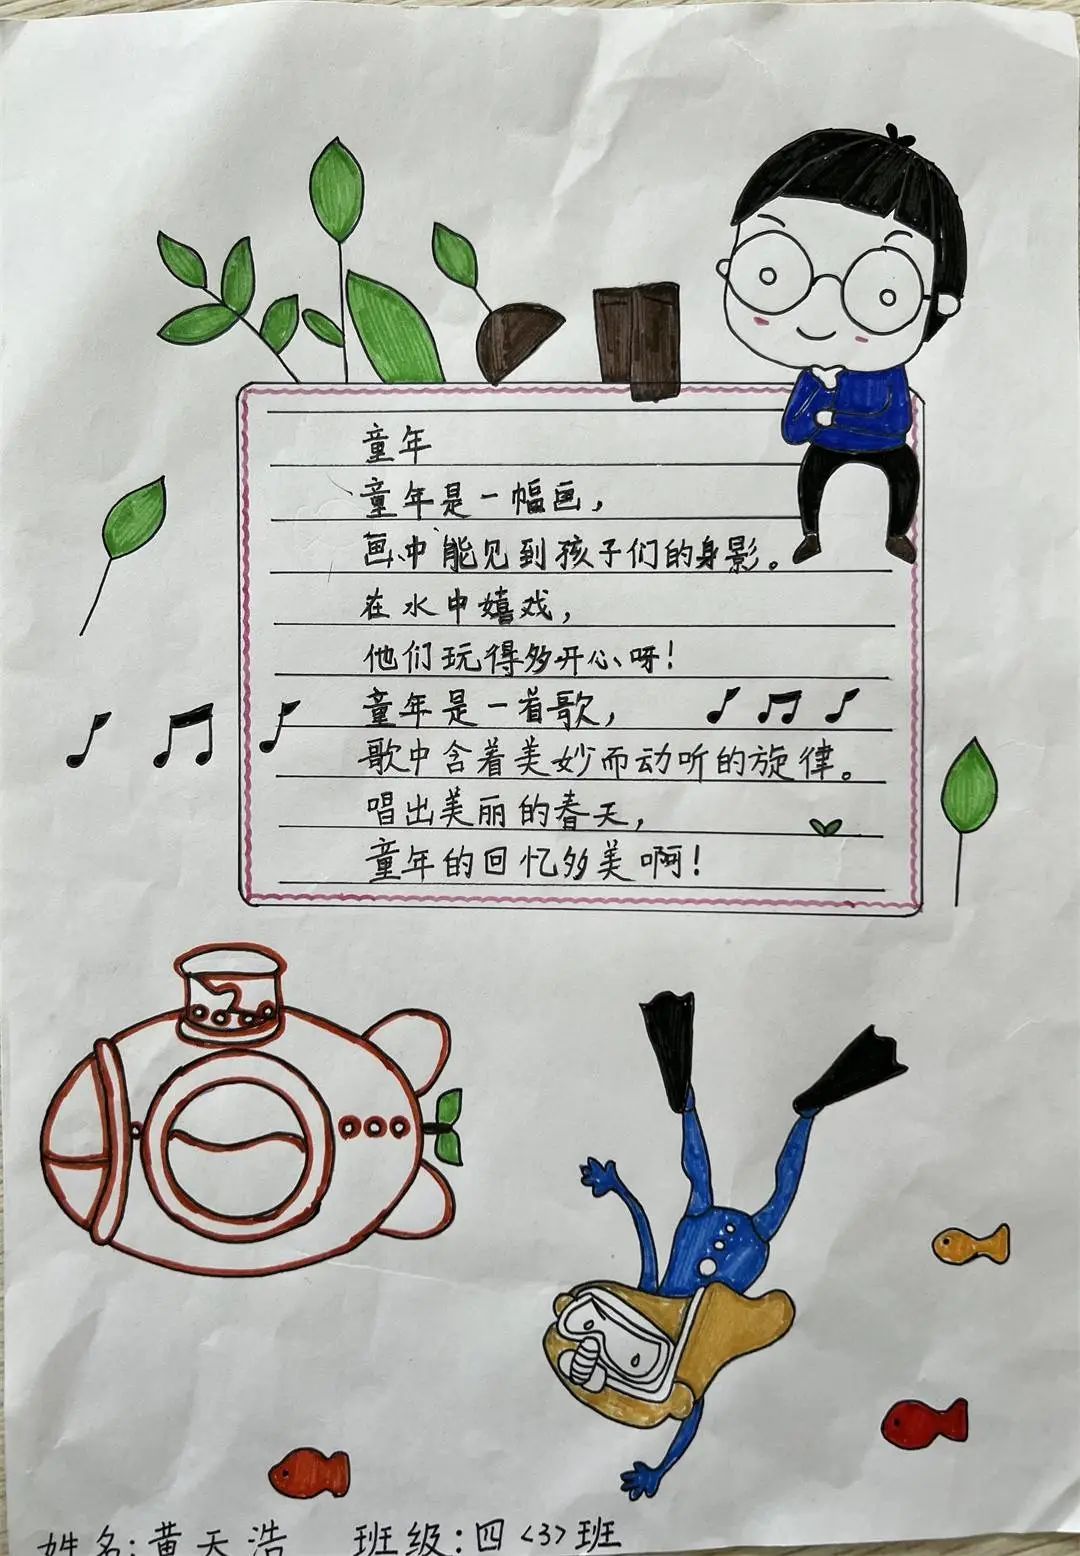 童年
童年是一幅画，
画中能见到孩子们的身影。
在水中嬉戏，
他们玩得多开心呀！
童年是一首歌，
歌中含着美妙而动听的旋律。
唱出美丽的春天，
童年的回忆多美啊！
姓名：黄天浩 班级：四〈3〉班